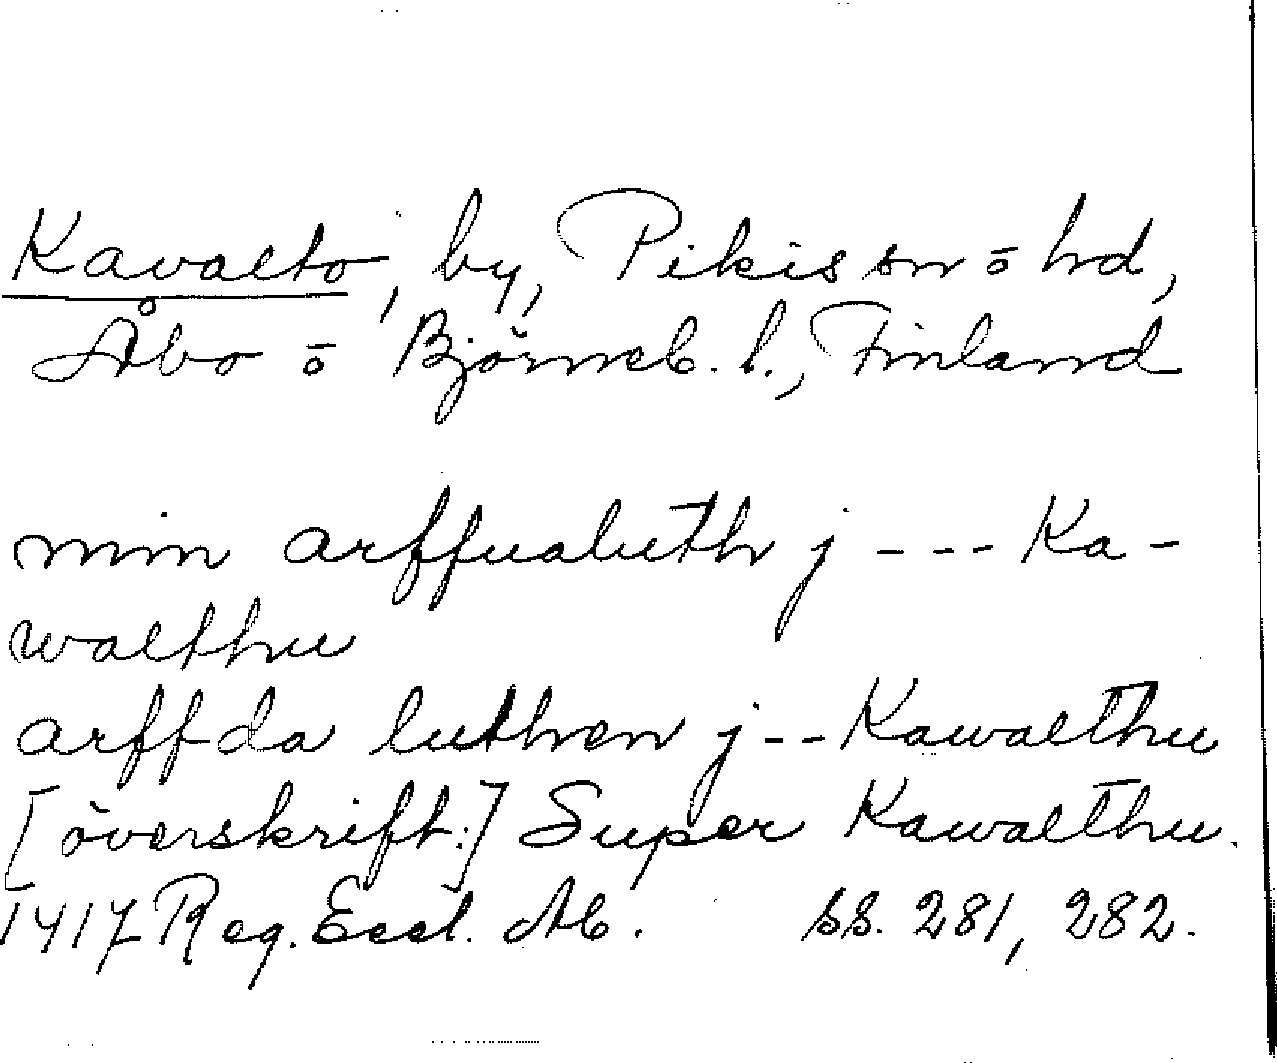 Kavalto, by, Pikis sn o hd,
Åbo o Björneb. l., Finland
min arffualuth j --- Ka-
walthu
arffda luthen j -- Kawalthu
[överskrift:] Super Kawalthu.
1417 Reg. Eccl. Ab. ss. 281, 282.